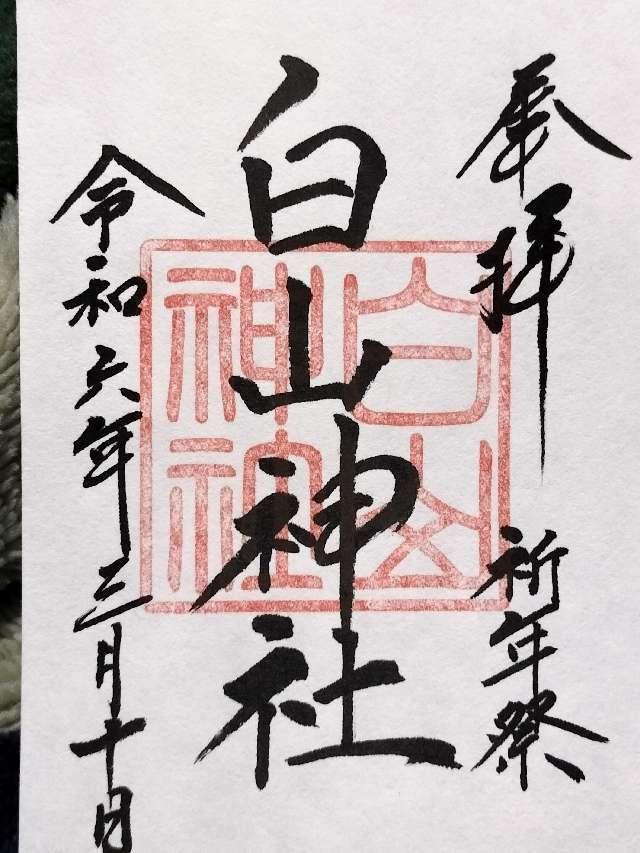 奉拝
祈年祭
白山神社
白山神社
令和六年三月十日